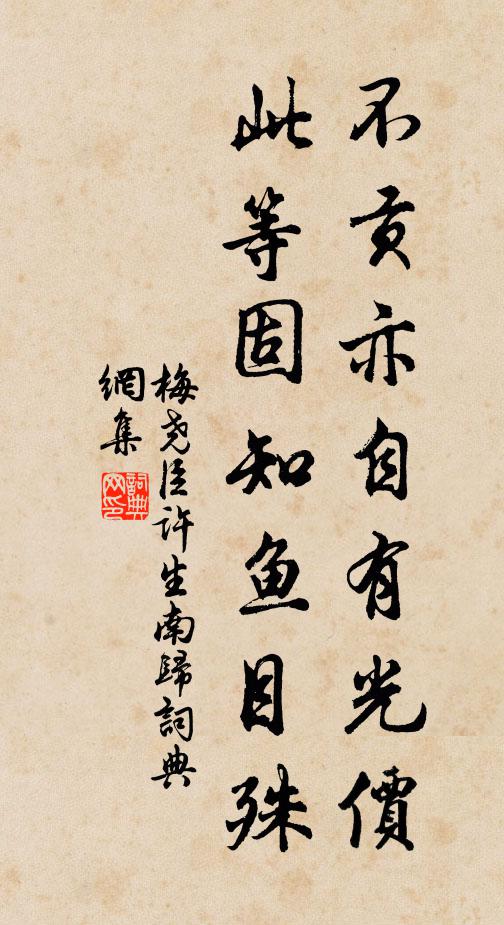 不貢亦自有光價
此等固知魚目殊
梅堯臣許生南歸詞典
網集
詞典
网印